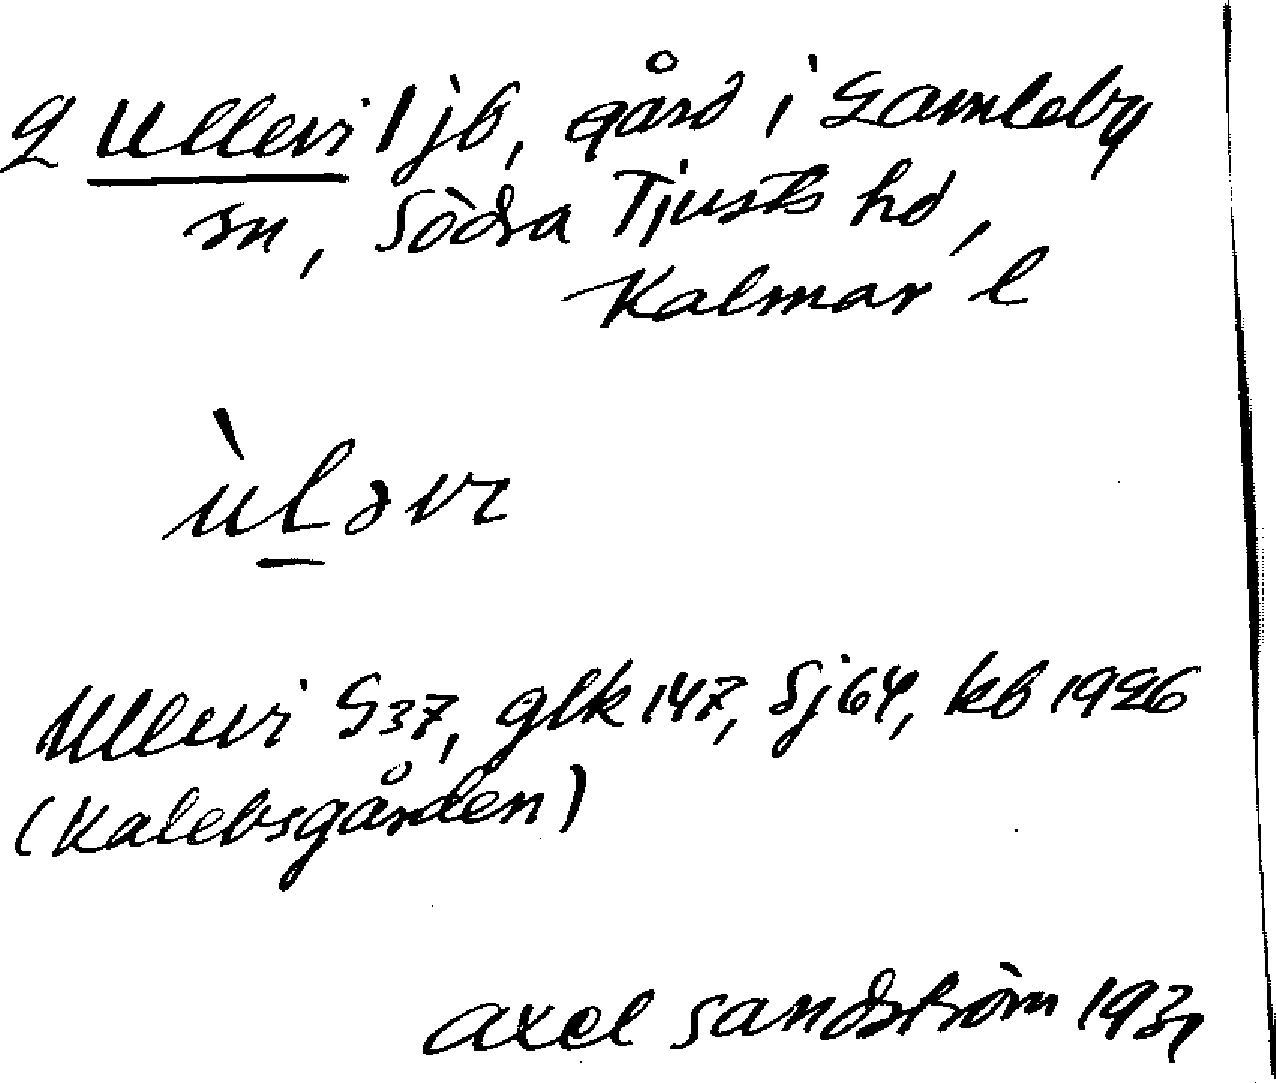 Ullevi 1 jb, gård i Gamleby
sn, Södra Tjusts hd,
Kalmar l
ùləvɪ
Ullevi S37, glk 147, Sj64, kb 1926
(Kalebsgården)
Axel Sandström 193